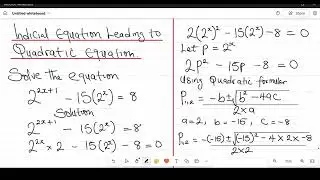 Untitled whiteboard
Indicial Equation Leading to
Quadratic Equation.
Solve the equation
2^(2x+1) - 15(2^x) = 8
Solution
2^(2x+1) - 15(2^x) = 8
2^(2x) × 2 - 15(2^x) - 8 = 0
2(2^x)² - 15(2^x) - 8 = 0
Let P = 2^x
2P² - 15P - 8 = 0
Using Quadratic formular
P₁,₂ = -b ± √(b² - 4ac)
2 × a
a = 2, b = -15, c = -8
P₁,₂ = -(-15) ± √((-15)² - 4 × 2 × -8)
2 × 2